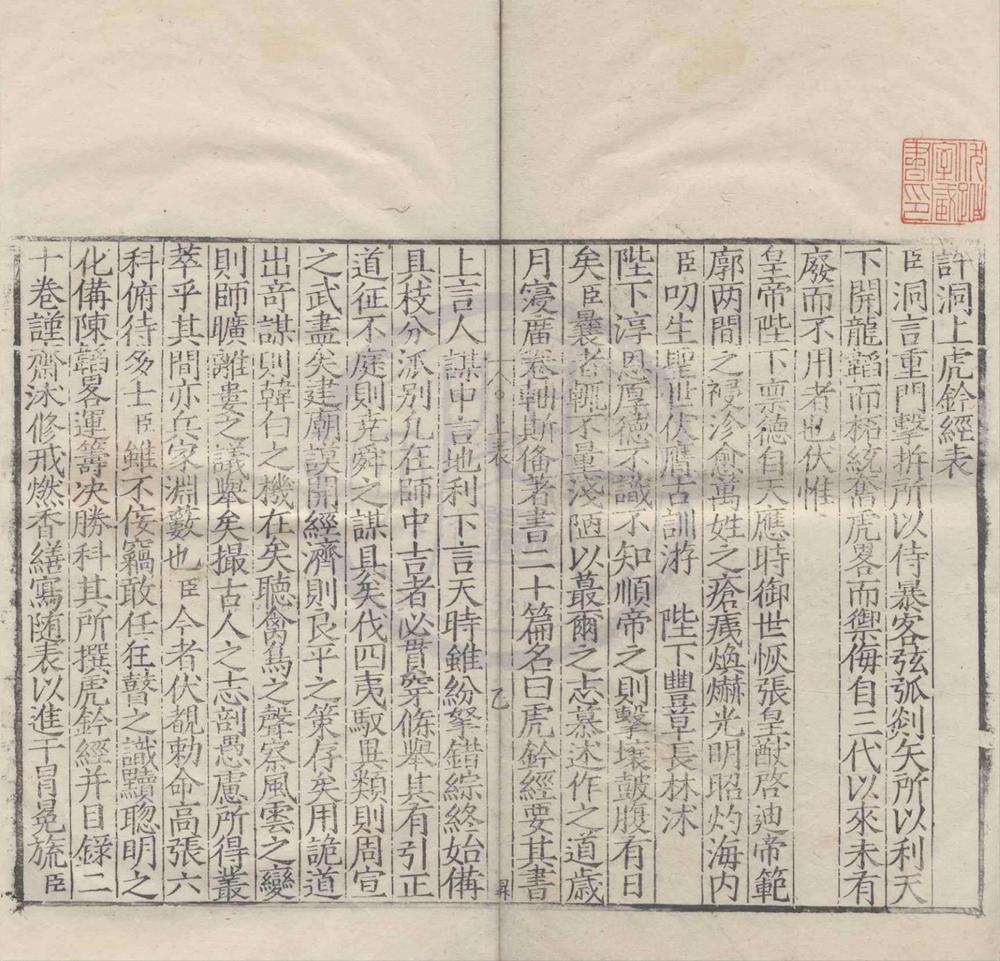 許洞上虎鈐經表
臣洞言重門擊拆所以待暴客弦弧剡矢所以利天
下開龍韜而柘統奮虎畧而禦侮自三代以來未有
廢而不用者也伏惟
皇帝陛下禀德自天應時御世恢張皇猷啓廸帝範
廓两間之祲沴愈萬姓之瘡痍煥爀光明昭灼海内
臣叨生聖世伏膺古訓游　陛下豐草長林沐
陛下淳恩厚德不識不知順帝之則擊壤皷腹有日
矣臣曩者輒不量淺陋以蕞爾之忐慕述作之道歳
月寖廣卷軸斯俻著書二十篇名曰虎鈐經要其書
上言人謀中言地利下言天時雖紛拏錯綜終始備
具枝分派别凡在師中吉者必貫穿條舉其有引正
道征不庭則堯舜之謀具矣伐四夷馭異類則周宣
之武盡矣建廟謨開經濟則良平之策存矣用詭道
出竒謀則韓白之機在矣聽禽鳥之聲察風雲之變
則師曠離婁之議舉矣撮古人之忐剖愚慮所得叢
萃乎其間亦兵家淵藪也臣今者伏覩勅命高張六
科俯待多士臣雖不佞竊敢任狂瞽之識黷聰明之
化備陳韜畧運籌决勝科其所撰虎鈐經并目錄二
十卷謹齋沐修戒燃香繕寫随表以進干冒冕旒臣
上表
乙